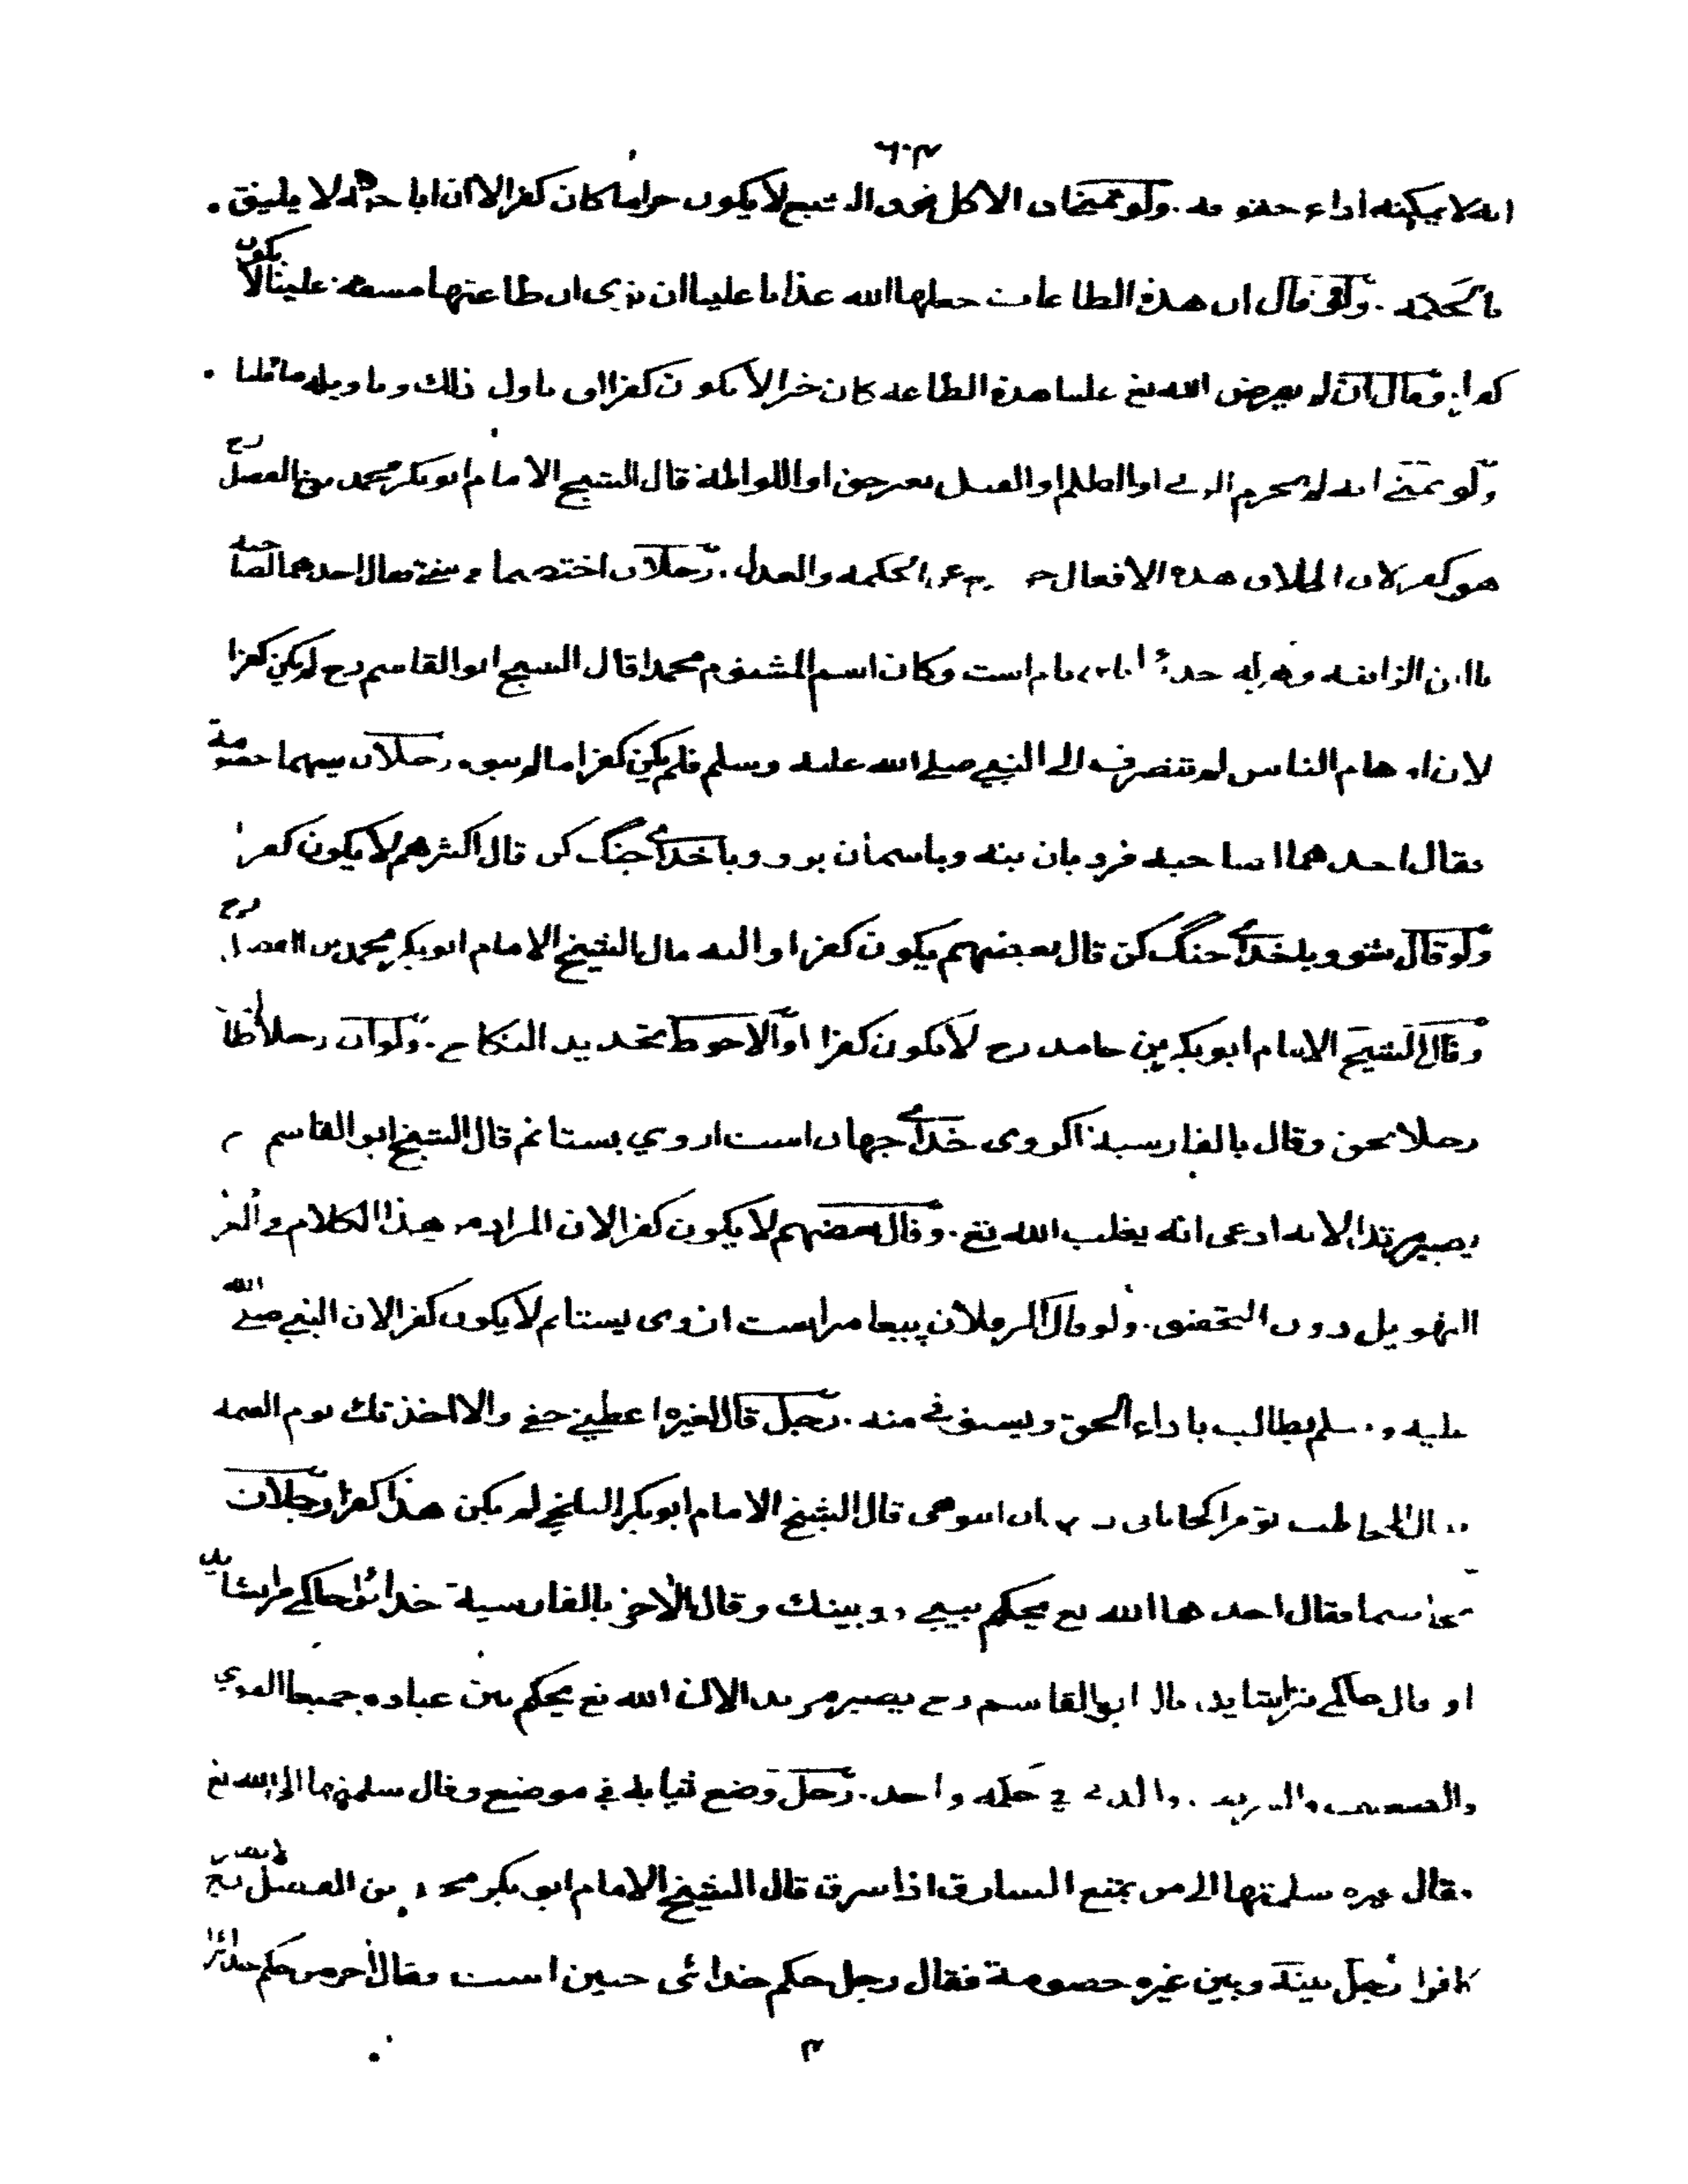 انه لا يمكنه اداء حقوقه . ولو تمنى ان الاكل فوق الشبع لا يكون حراما كان كفرا لان اباحته لا يليق .
بالحكمة . ولو قال ان هذه الطاعات جعلها الله عذابا علينا ان طاعتها مسقة علينا لا يكون
كفرا وقال ان لم يفرض الله تع علينا هذه الطاعة كان خيرا لا يكون كفرا ان ياول ذلك وتاويله ما قلنا .
ولو تمنى انه لم يحرم الزنى او الظلم او القتل بغير حق او اللواطة قال الشيخ الامام ابو بكر محمد بن الفضل رح
هو كفر لان اطلاق هذه الافعال عن الحكمة والعدل . رجلان اختصما فقال احدهما لصاحبه
يا ابن الزانية نام است وكان اسم المشتوم محمدا قال الشيخ ابو القاسم رح لم يكن كفرا
لان اوهام الناس لم تنصرف الى النبي صلى الله عليه وسلم فلم يكن كفرا ما لم ينو . رجلان بينهما خصومة
فقال احدهما لصاحبه نردبان بنه وباسمان برو وبا خداى جنگ كن قال اكثرهم لا يكون كفرا
ولو قال شو وبا خداى جنگ كن قال بعضهم يكون كفرا واليه مال الشيخ الامام ابو بكر محمد بن الفضل رح
وقال الشيخ الامام ابو بكر بن حامد رح لا يكون كفرا والاحوط تجديد النكاح . ولو ان رجلا ظالما
رجلا بحق وقال بالفارسية اگر وى خداى جهان است از وي بستانم قال الشيخ ابو القاسم
يصير مرتدا لانه ادعى انه يغلب الله تع . وقال بعضهم لا يكون كفرا لان المراد من هذا الكلام في العرف
التهويل دون التحقيق . ولو قال اگر فلان پيغامبر است از وى بستانم لا يكون كفرا لان النبي صلى الله
عليه وسلم يطالب باداء الحق ويستوفى منه . رجل قال لغيره اعطني حقي والا اخذتك يوم القيمة
فقال المخاطب تو مرا كجا يابى قال الشيخ الامام ابو بكر البلخي لم يكن هذا كفرا رجلان
تخاصما فقال احدهما الله تع يحكم بيني وبينك وقال الاخر بالفارسية خدائى حاكمي را نشايد
او قال حاكمي را نشايد قال ابو القاسم رح يصير مرتدا لان الله تع يحكم بين عباده جميعا القوي
والضعيف والشريف والدني في حكمه واحد . رجل وضع ثيابه في موضع وقال سلمتها الى الله تع
فقال غيره سلمتها الى من يمنع السارق اذا سرق قال الشيخ الامام ابو بكر محمد بن الفضل رح لا يصير
كافرا رجل بينه وبين غيره خصومة فقال رجل حكم خدائى چنين است فقال الاخر من حكم خدائرا